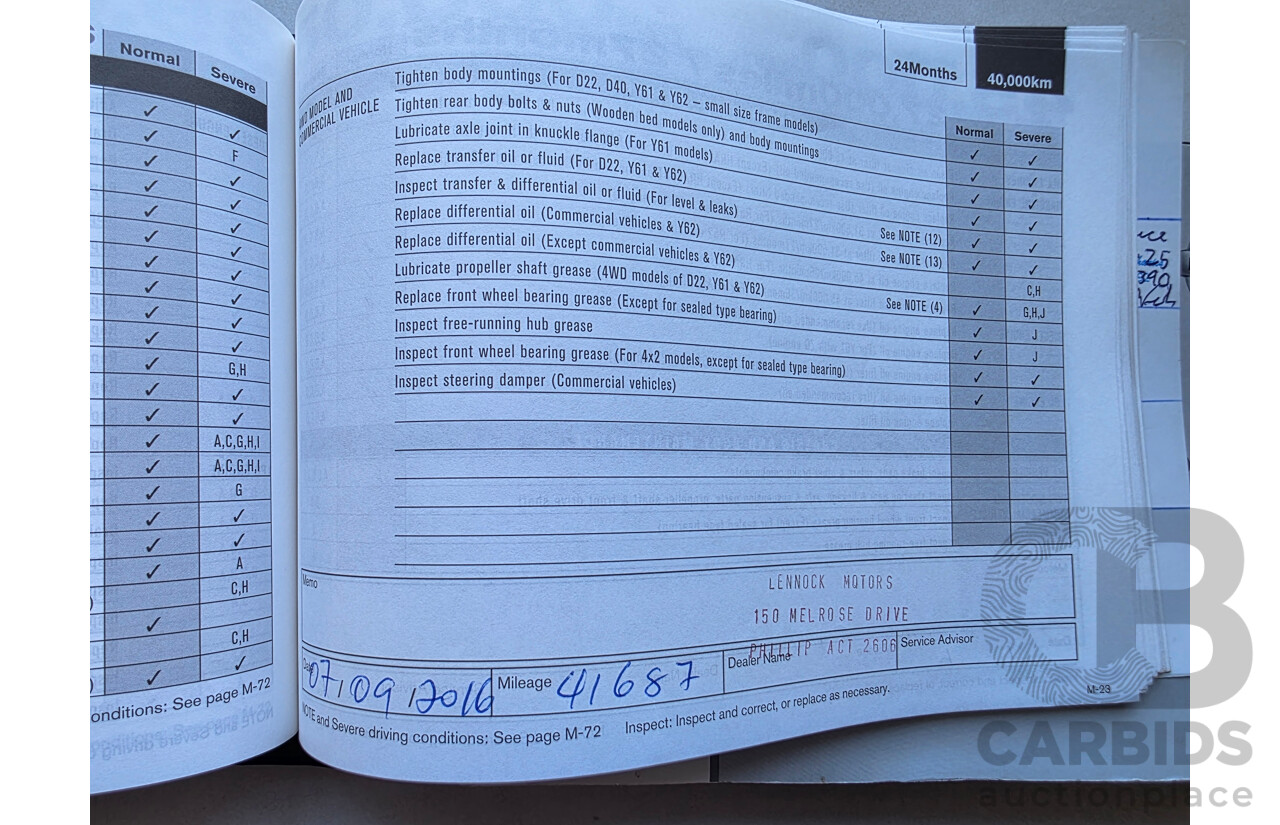 S
Normal
Severe
✓
✓ ✓
✓ F
✓ ✓
✓ ✓
✓ ✓
✓ ✓
✓ ✓
✓ ✓
✓ ✓
✓ G,H
✓ ✓
✓ ✓
✓ A,C,G,H,I
✓ A,C,G,H,I
✓ G
✓ ✓
✓ ✓
✓ A
C,H
✓
C,H
✓ ✓
onditions: See page M-72
24Months
40,000km
WD MODEL AND
COMMERCIAL VEHICLE
Normal
Severe
Tighten body mountings (For D22, D40, Y61 & Y62 – small size frame models) ✓ ✓
Tighten rear body bolts & nuts (Wooden bed models only) and body mountings ✓ ✓
Lubricate axle joint in knuckle flange (For Y61 models) ✓ ✓
Replace transfer oil or fluid (For D22, Y61 & Y62) ✓ ✓
Inspect transfer & differential oil or fluid (For level & leaks) See NOTE (12) ✓ ✓
Replace differential oil (Commercial vehicles & Y62) See NOTE (13) ✓ ✓
Replace differential oil (Except commercial vehicles & Y62) C,H
Lubricate propeller shaft grease (4WD models of D22, Y61 & Y62) See NOTE (4) ✓ G,H,J
Replace front wheel bearing grease (Except for sealed type bearing) ✓ J
Inspect free-running hub grease ✓ J
Inspect front wheel bearing grease (For 4x2 models, except for sealed type bearing) ✓ ✓
Inspect steering damper (Commercial vehicles) ✓ ✓
Memo
LENNOCK MOTORS
150 MELROSE DRIVE
PHILLIP ACT 2606
Date 07/09/2016
Mileage 41687
Dealer Name
Service Advisor
NOTE and Severe driving conditions: See page M-72
Inspect: Inspect and correct, or replace as necessary.
M-23
CARBIDS
auctionplace